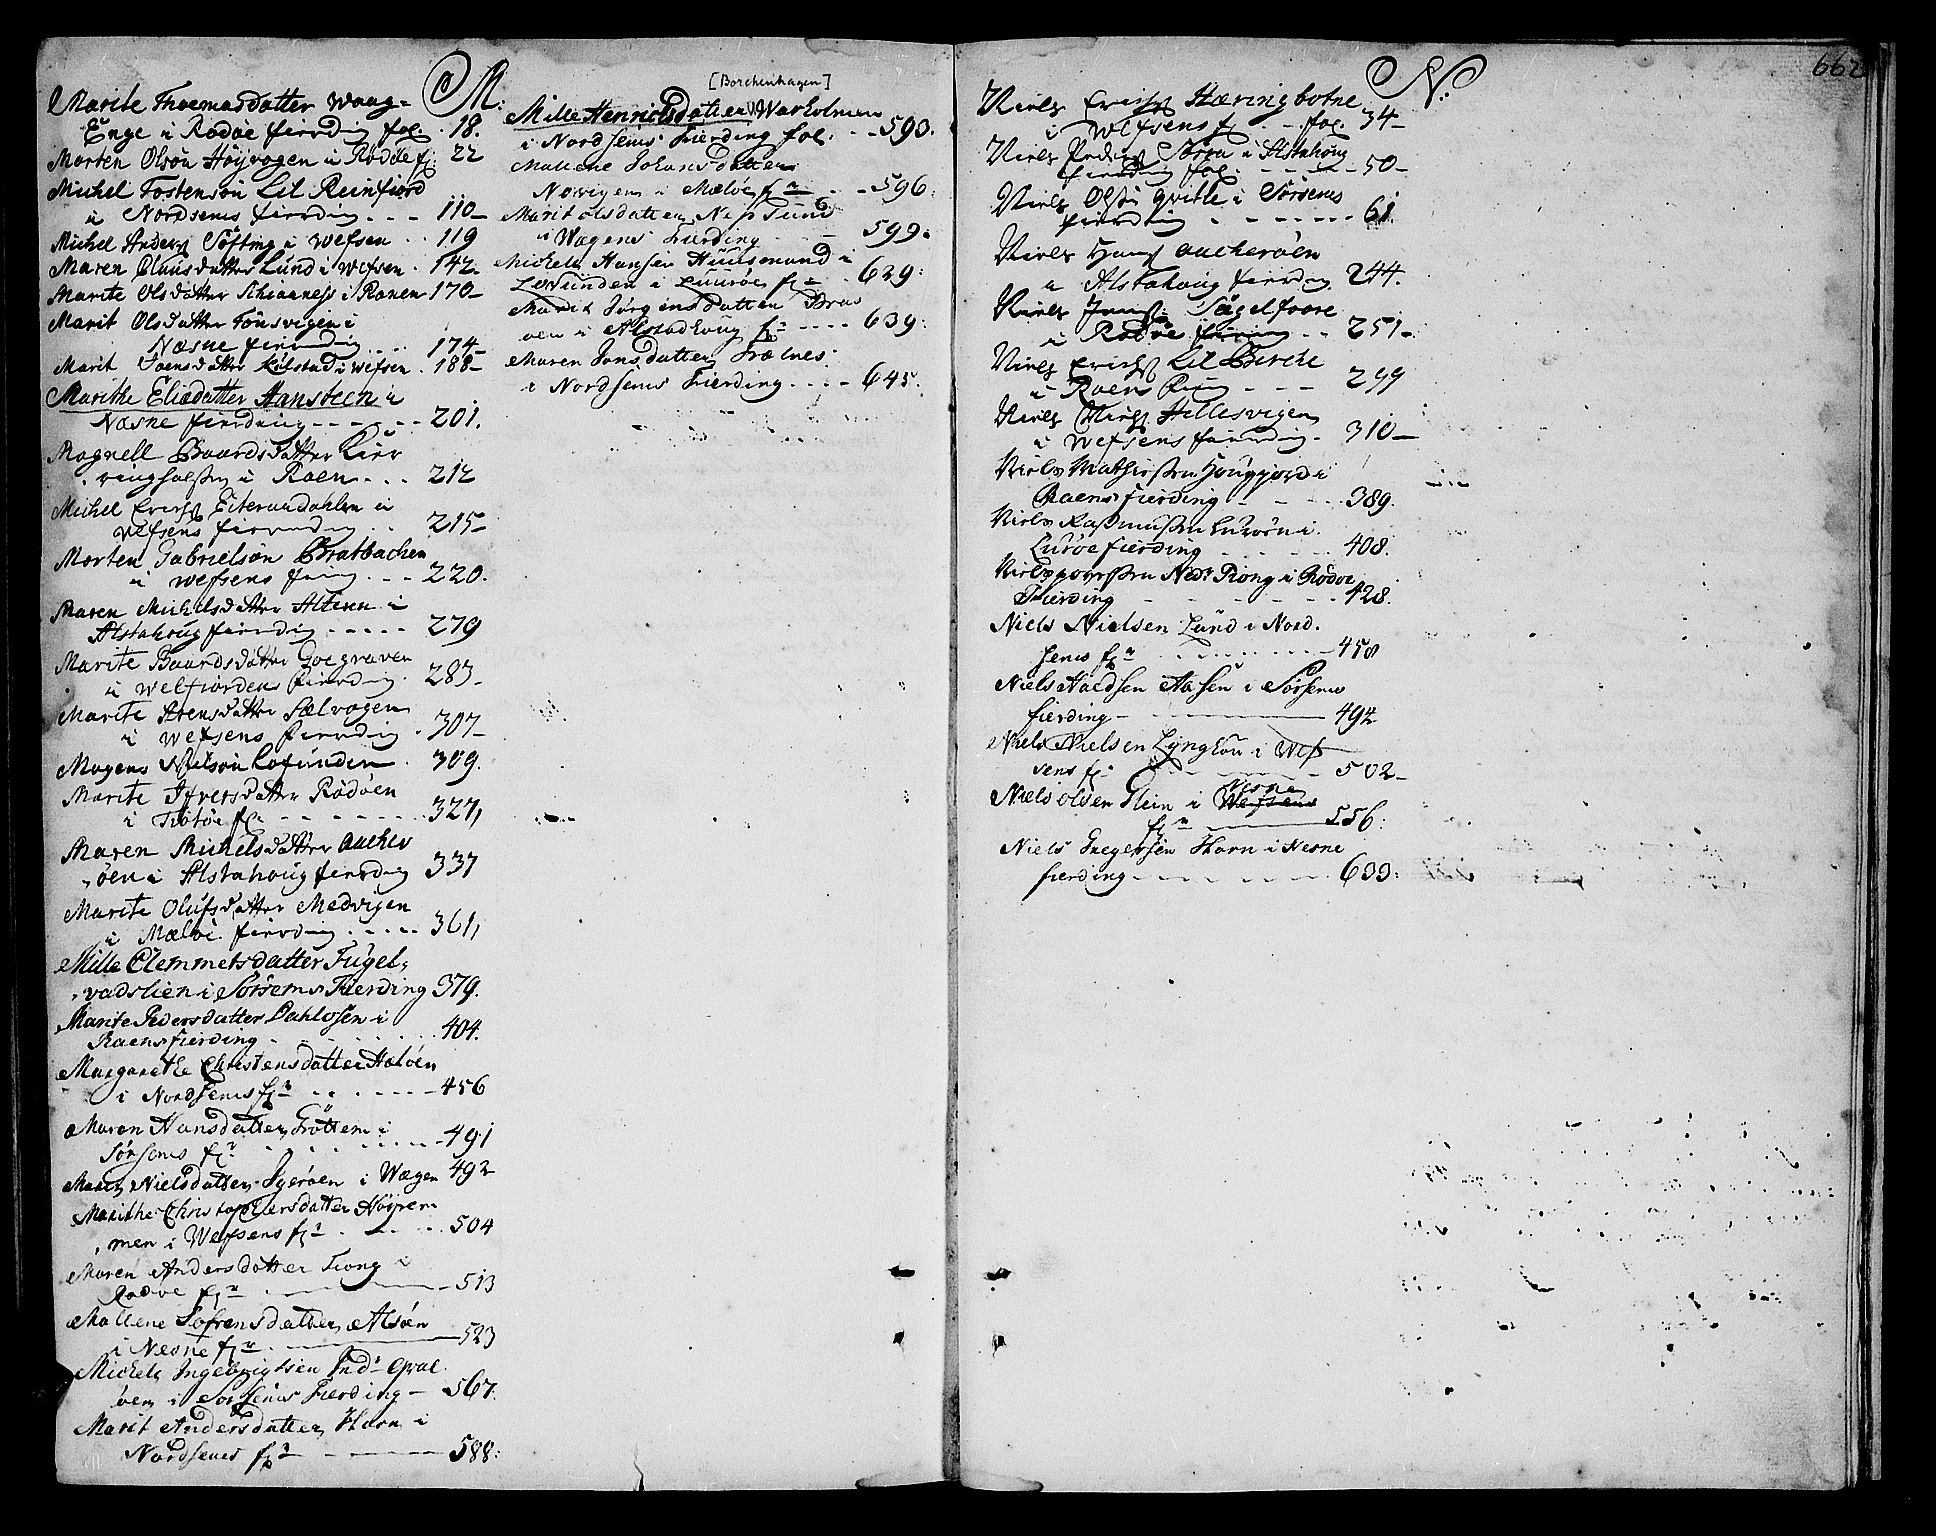 M:
Marite Thoemasdatter Waag=
Enge i Rødøe fierding fol. . 18.
Morten Olsøn Høyvogen i Rødøe fj: 22
Michel Tostensøn Lil Reinfiord
i Nordsenis fierding . . . 110-
Michel Anders: Søfting i Wefsen . . 119
Maren Clausdatter Lund i Wefsen . 142-
Marite Olsdatter Schiaaness i Ranen 170-
Marit Olsdatter Tonsvigen i
Næsne fierding . . . 174-
Marit Joensdatter Kulstad i Wefsen . 188-
Marithe Eliædatter Hansteen i
Næsne fierding - - - - - 201.
Magnell Baardsdatter Kier
ringholsen i Raen . . . 212
Michel Erichs: Eiteraadahlen i
Wefsens fierding . . 215-
Morten Gabrielsøn Bratbachen
i Wefsens fierding . . . 220.
Maren Michelsdatter Alteren i
Alstahoug fierding - - - - - 279
Marite Baardsdatter Goegraven
i Welfiordens fierding . 283-
Marite Arensdatter Sælvogen
i Wefsens fierding . 307-
Mogens Nielsøn Lofunden . 309.
Marite Ifversdatter Rødøen
i Trotøe fj: - - - - - - - 327,
Maren Michelsdatter Aacher
øen i Alstahoug fierding 337
Marite Olufsdatter Medvigen
i Mæløe fierding . . . . . 361,
Mille Clemmetsdatter Fugel,
vadslien i Sørsems Fierding 379.
Marite Pedersdatter Dahlosen i
Raens fierding - . . . . . . 404.
Margarethe Christensdatter Haløen
i Nordsenis fj: . . - - - - 456
Maren Hansdatter Grøttem i
Sørsenis fj: . . . . . . - 491
Maren Nielsdatter Igerøen i Wægen 492
Marithe Christophersdatter Høyrem
men i Wefsens fj: . - . . . 504
Maren Andersdatter Tiong i
Rødøe fj: . - - 513
Mallene Sofrensdatter Alsøen
i Nesne fj: . - 523
Michel Ingebrigtsen Ind: Qval
øen i Sørsenis Fierding - 567.
Marit Andersdatter Horn i
Nordsenis fj: - - - - - - 588:
[Borchenhagen]
Mille Henrichsdatter Warholmen
i Nordsenis Fierding fol. - - 590.
Mallene Johansdatter
Norvigen i Mæløe fj: . - - 596:
Marit Olsdatter Nessund
i Wægens Fierding - - - 599.
Michel Hansen Huusmand i
Lovunden i Luurøe fj: . - 629:
Marit Jørgensdatter Braa
øen i Alstadhoug fj: - - - - 639:
Maren Jonsdatter Trælnes
i Nordsenis Fierding - - - - 645:
662
N:
Niels Erichs: Hæringbotne
i Wefsens fj: . - . fol. 34-
Niels Peders: Sørra i Alstahoug
fierding fol. . - - - - 50-
Niels Olsøn Qville i Sørsens
fierding - - - - - - - - 61.
Niels Hans: Aacherøen
i Alstahoug fierding 244.
Niels Jens: Sagelfoore
i Rødøe fierding . . 251-
Niels Erichs: Lil Berche
i Raens fierding - - - 299
Niels Niels: Hellesvigen
i Wefsens fierding . 310-
Niels Mathiesen Hougjord i
Raens fierding - - . . . 389.
Niels Rasmussen Lurøen i
Lurøe fierding . . . . . . 408.
Niels Poversen Ned: Tiong i Rødøe
Fierding - - - - - - - 428.
Niels Nielsen Lund i Nord.
senis fj: . . . . . . . . - - - 458
Niels Aasen i Sørsenis
fierding - - 494
Niels Nielsen Lyngen i Wef
sens fj: . - - - - - 502-
Niels Olsen Glein i Wefsens Nesne
fj: - 556:
Niels Gregersen Horn i Nesne
fierding - - - - - - - - 633: